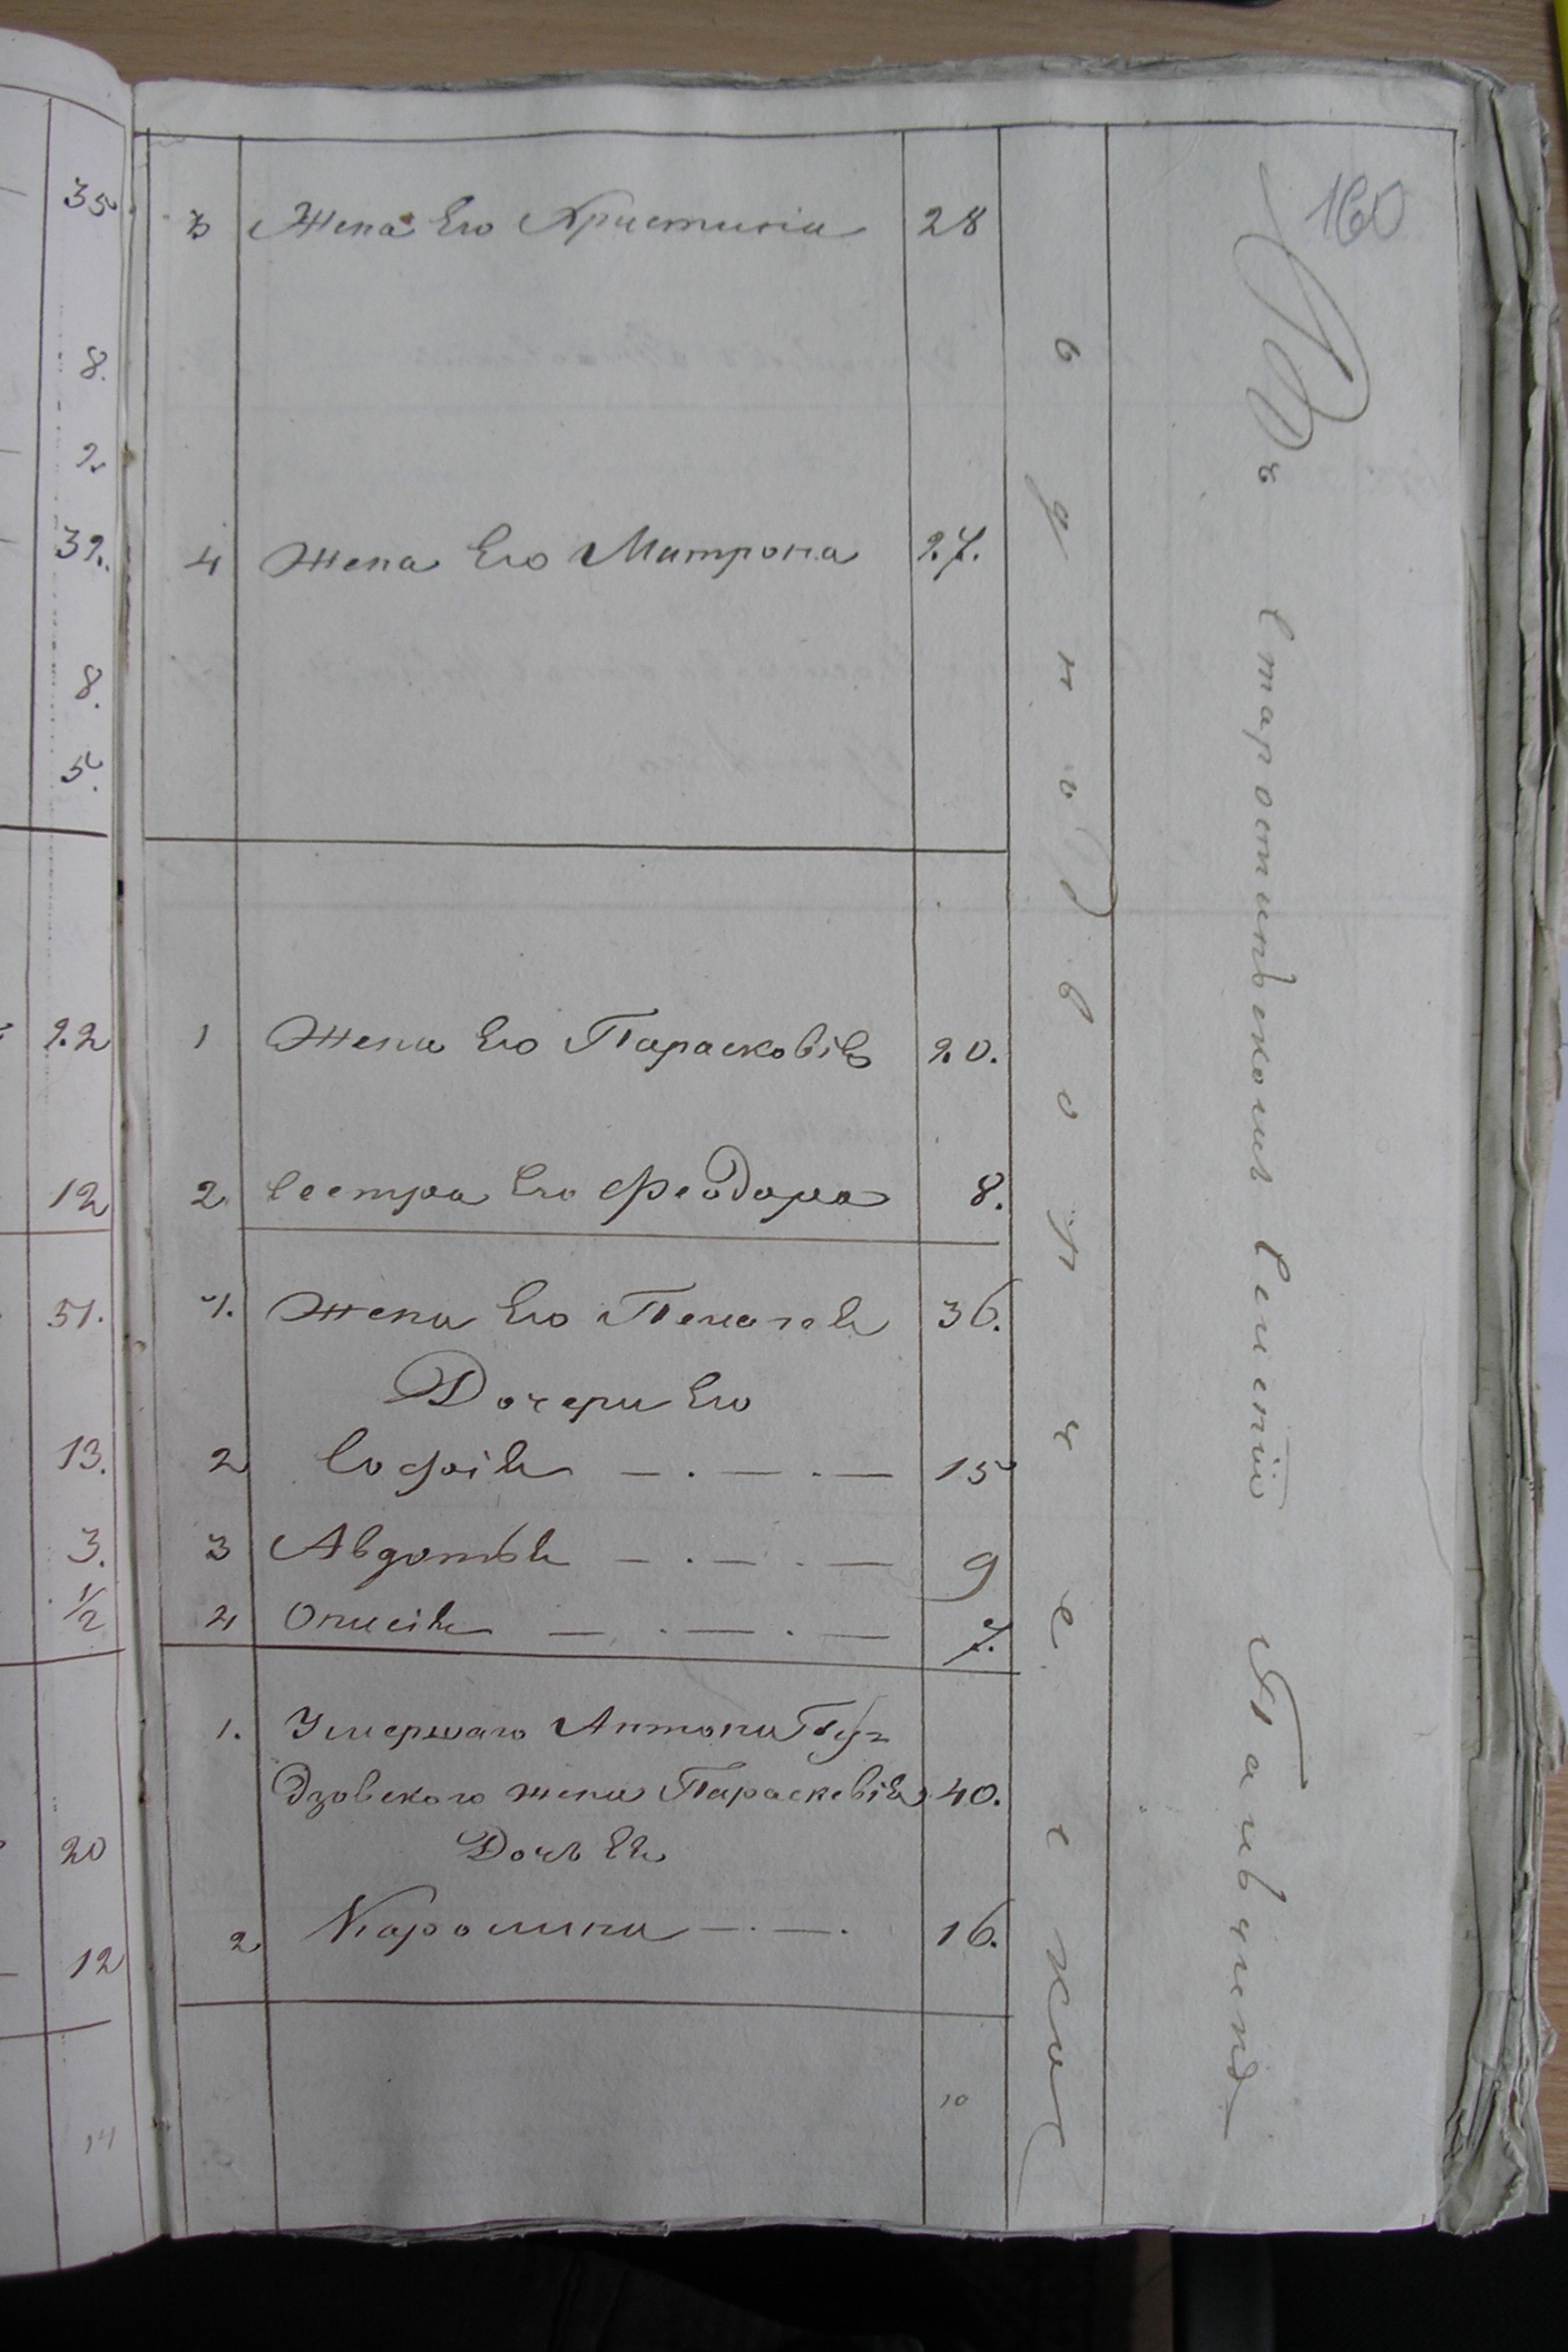 160
3 Жена Его Христинія 28
4 Жена Его Матрона 27.
1 Жена Его Парасковія 20.
2 Сестра Его Феодора 8.
1. Жена Его Пелагея 36.
Дочери Его
2 Софія — . — . — 15
3 Авдотья — . — . — 9
4 Онисія — . — . — 7.
1. Умершаго Антона
дзовского жена Параскевія 40.
Дочь Ея
2 Каролина — . — . 16.
10
однодворческое
Въ Старостинскомъ Селеніи
35
8.
2
32.
8.
5.
22
12
51.
13.
3.
1/2
20
12
14